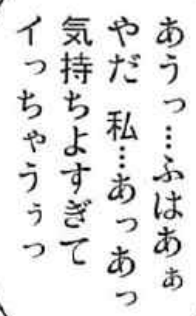 あうっ…ふはあぁ
やだ 私…あっあっ
気持ちよすぎて
イっちゃうぅっ